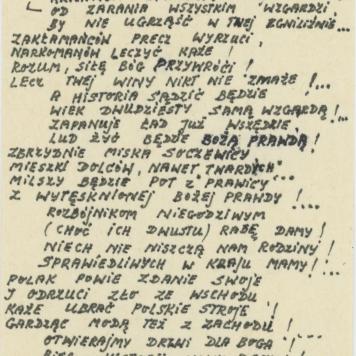 OD ZARANIA WSZYSTKIM WZGARDZI,
BY NIE UGRZĄŚĆ W TWEJ ZGNILIŹNIE...
ZAKŁAMAŃCÓW PRECZ WYRZUCI,
NARKOMANÓW LECZYĆ KAŻE!
ROZUM, SIŁĘ BÓG PRZYWRÓCI!
LECZ TWEJ WINY NIKT NIE ZMAŻE!...
A HISTORIA SĄDZIĆ BĘDZIE
WIEK DWUDZIESTY SAMĄ WZGARDĄ!...
ZAPANUJE ŁAD JUŻ WSZĘDZIE,
LUD ŻYĆ BĘDZIE BOŻĄ PRAWDĄ!
ZBRZYDNIE MISKA SOCZEWICY
MIESZKI DOLCÓW, NAWET "TWARDYCH"
MILSZY BĘDZIE POT Z PRAWICY
Z WYTĘSKNIONEJ BOŻEJ PRAWDY!...
ROZBÓJNIKOM NIEGODZIWYM
(CHOĆ ICH DWUSTU) RADĘ DAMY!
NIECH NIE NISZCZĄ NAM RODZINY!
SPRAWIEDLIWYCH W KRAJU MAMY!...
POLAK POWIE ZDANIE SWOJE
I ODRZUCI ZŁO ZE WSCHODU
KAŻE UBRAĆ POLSKIE STROJE!
GARDZĄC MODĄ TEŻ Z ZACHODU!
OTWIERAJMY DRZWI DLA BOGA!